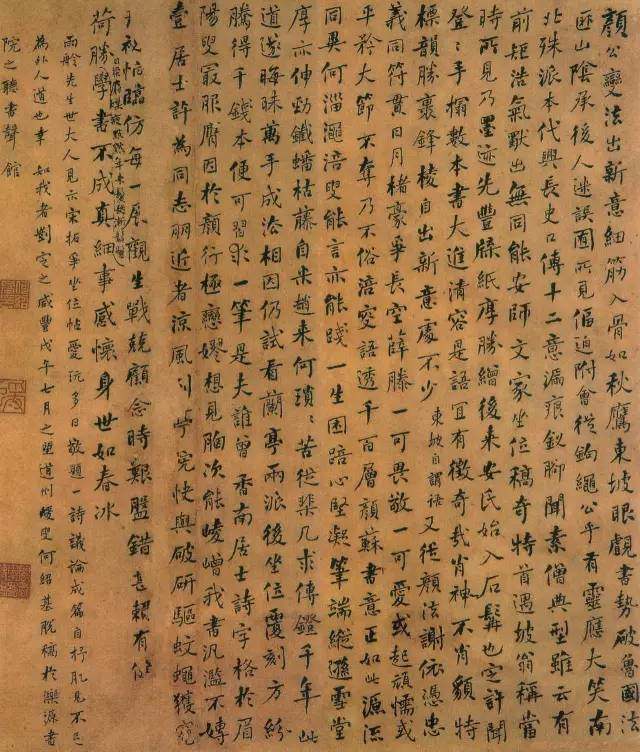 顏公變法出新意細筋入骨如秋鷹東坡眼覷書勢破魯國法
匪山陰承後人迷誤面所見傴迫附會從繩公乎有靈應大笑南
北殊派本代興長史口傳十二意漏痕釵腳聞素僧典型雖云有
前矩浩氣出無同能安師文家坐位稿奇特首遇坡翁稱當
時所見乃墨迹先豐紙摩勝繒後來安民始入石髯也定許聞
登〻手搨數本書大進清容是語宜有徵奇哉肖神不肖貌特
標韻勝裹鋒棱自出新意處不少東坡自謂語又從顏法謝依憑忠
義同符貫日月楮豪爭長空薛滕一可畏敬一可愛或起頑懦或
平矜大節不奪乃不俗涪叟語透千百層顏蘇書意正如此源流
同異何淄澠涪叟能言亦能踐一生困踣心堅凝筆端縱遜雪堂
厚亦伸勁鐵蟠枯藤自米趙來何瑣〻苦從棐几求傳鐙千年此
道遂晦昧萬手成沿相因仍試看蘭亭兩派後坐位覆刻方紛
騰得千錢本便可習求一筆是夫誰曾香南居士詩字格於眉
陽叟最服膺因於顏行極戀嫪想見胸次能崚嶒我書汎濫不專
壹居士許為同志朋近者涼風引學究快與破研驅蚊蠅獲窺
秘恰臨仿每一展觀生戰兢顧念時艱盤錯甚賴有
荷勝學書不成真細事感懷身世如春冰
雨舲先生世大人見示宋拓爭坐位帖愛玩多日敬題一詩議論成篇自抒肊見不足
為外人道也幸如我者劉定之咸豐戊午七月之望道州蝯叟何紹基脫稿於濼源書
院之聽書聲館